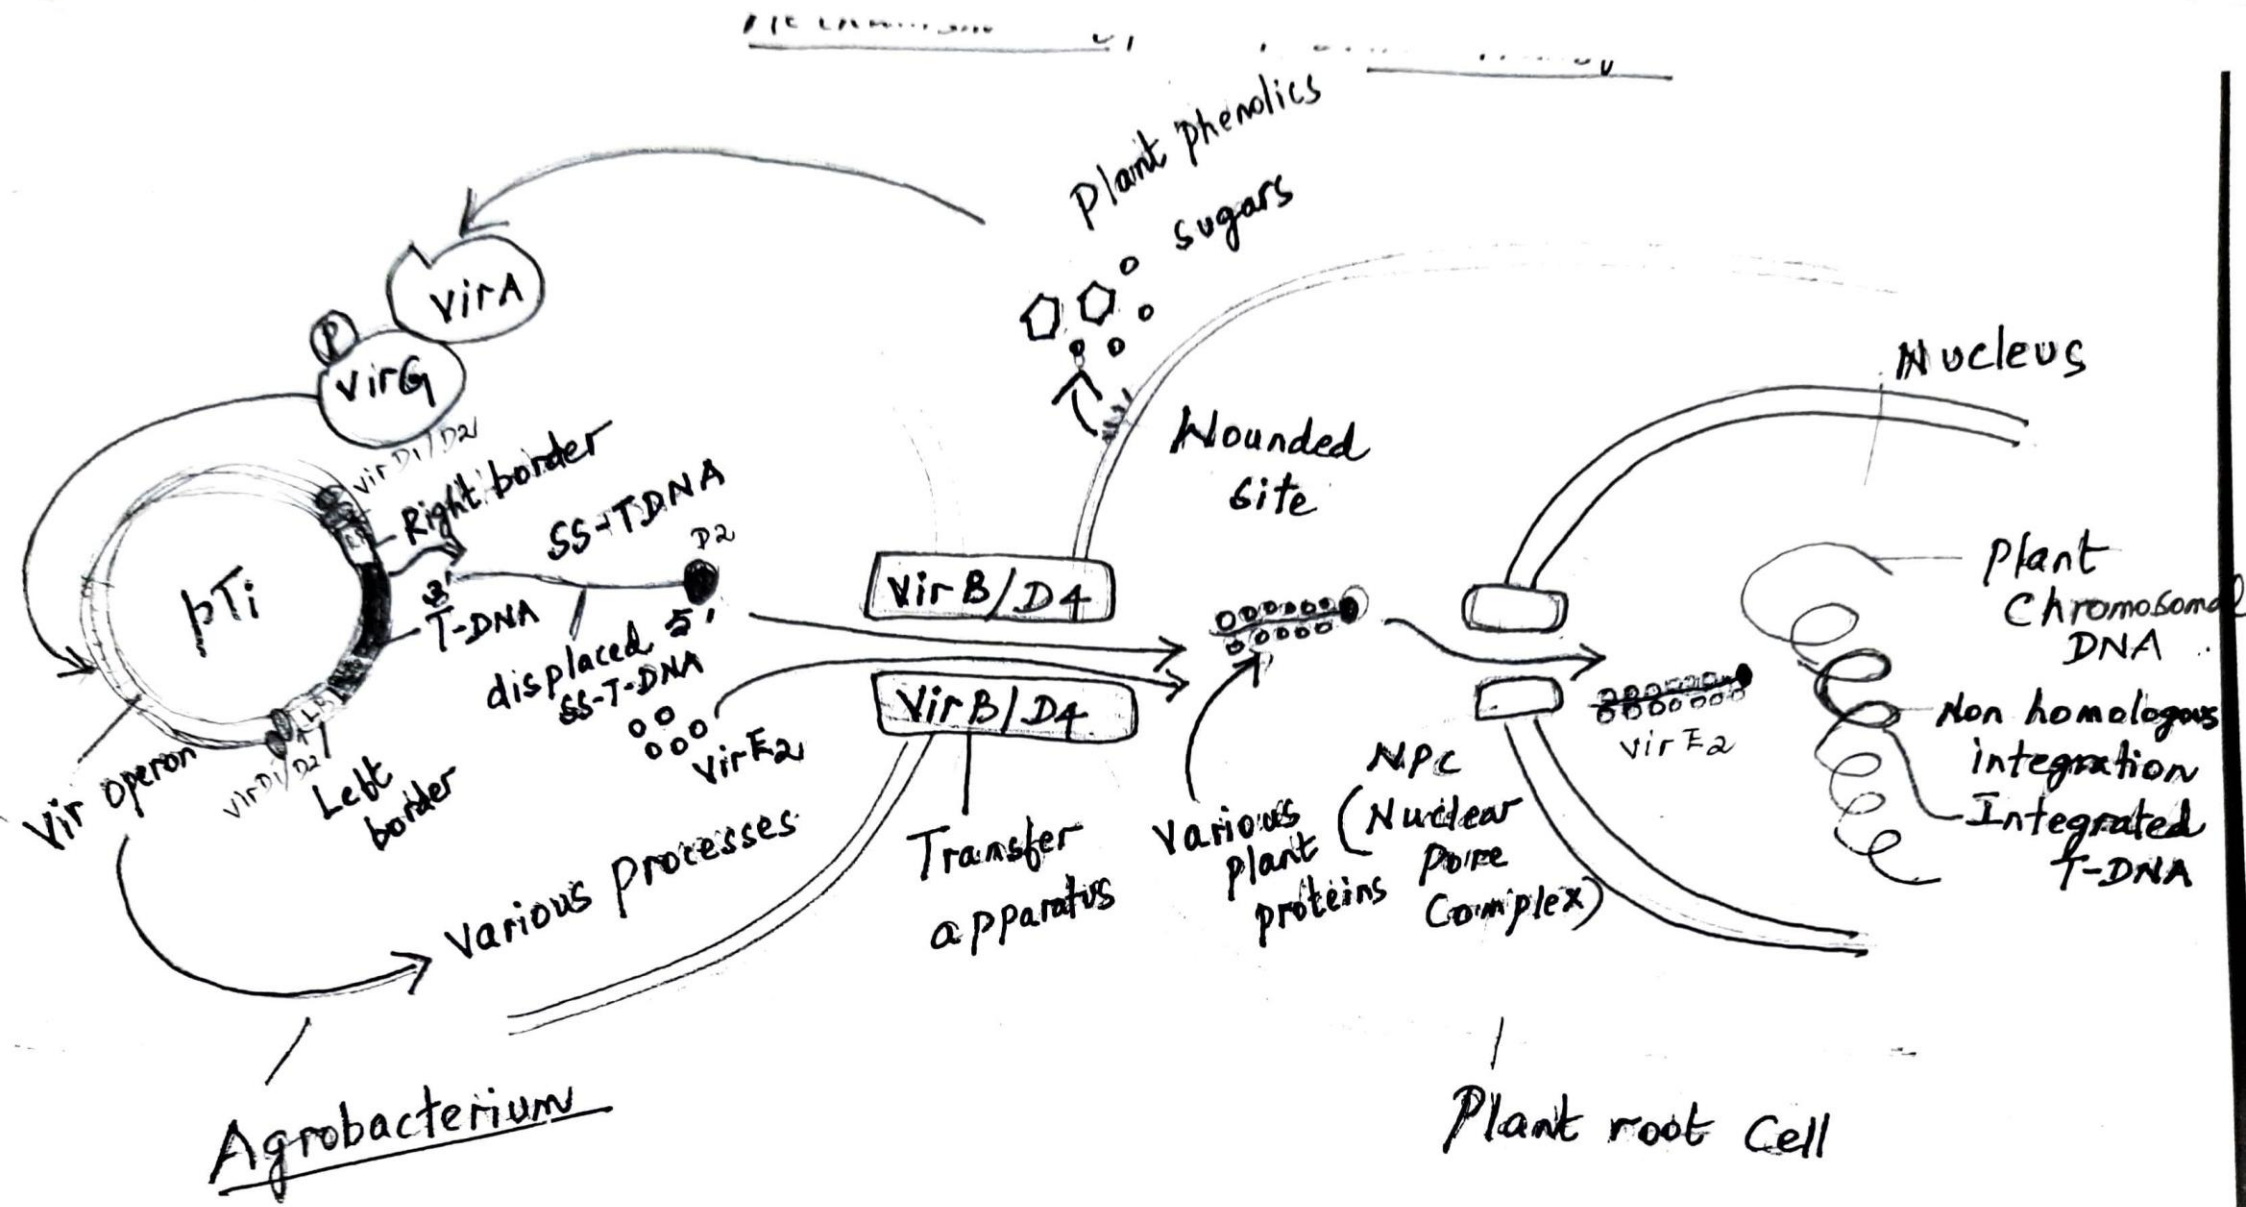 Plant phenolics
sugars
virA
P
VirG
virD1/D2
Right border
SS-TDNA
D2
3'
5'
T-DNA
displaced
SS-T-DNA
pTi
Vir operon
virD1/D2
Left
border
VirE2
Various processes
VirB/D4
VirB/D4
Transfer
apparatus
Wounded
site
Various
plant
proteins
NPC
(Nuclear
Pore
Complex)
Nucleus
virE2
Plant
Chromosomal
DNA
Non homologous
integration
Integrated
T-DNA
Agrobacterium
Plant root Cell